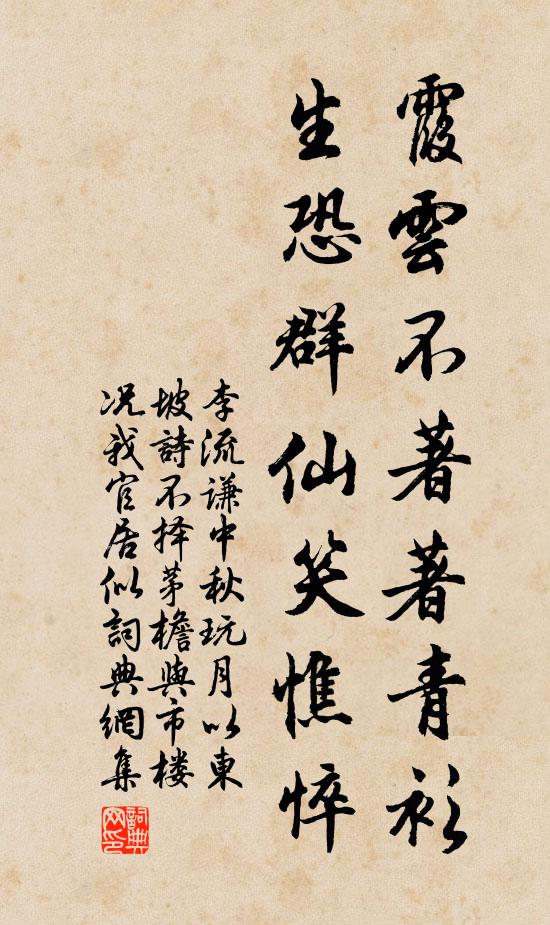 霞雲不著著青衫
生恐群仙笑憔悴
李流谦中秋玩月以東
坡詩不择茅檐與市楼
况我官居似詞典網集
詞典
网印